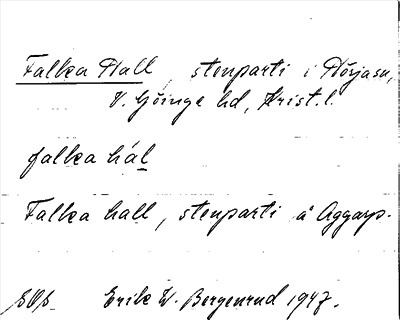 Falka Hall, stenparti i Hörjasn,
V. Göinge hd, Krist. l.
falka hál
Falka hall, stenparti å Aggarp.
Erik W. Bergenrud 1947.